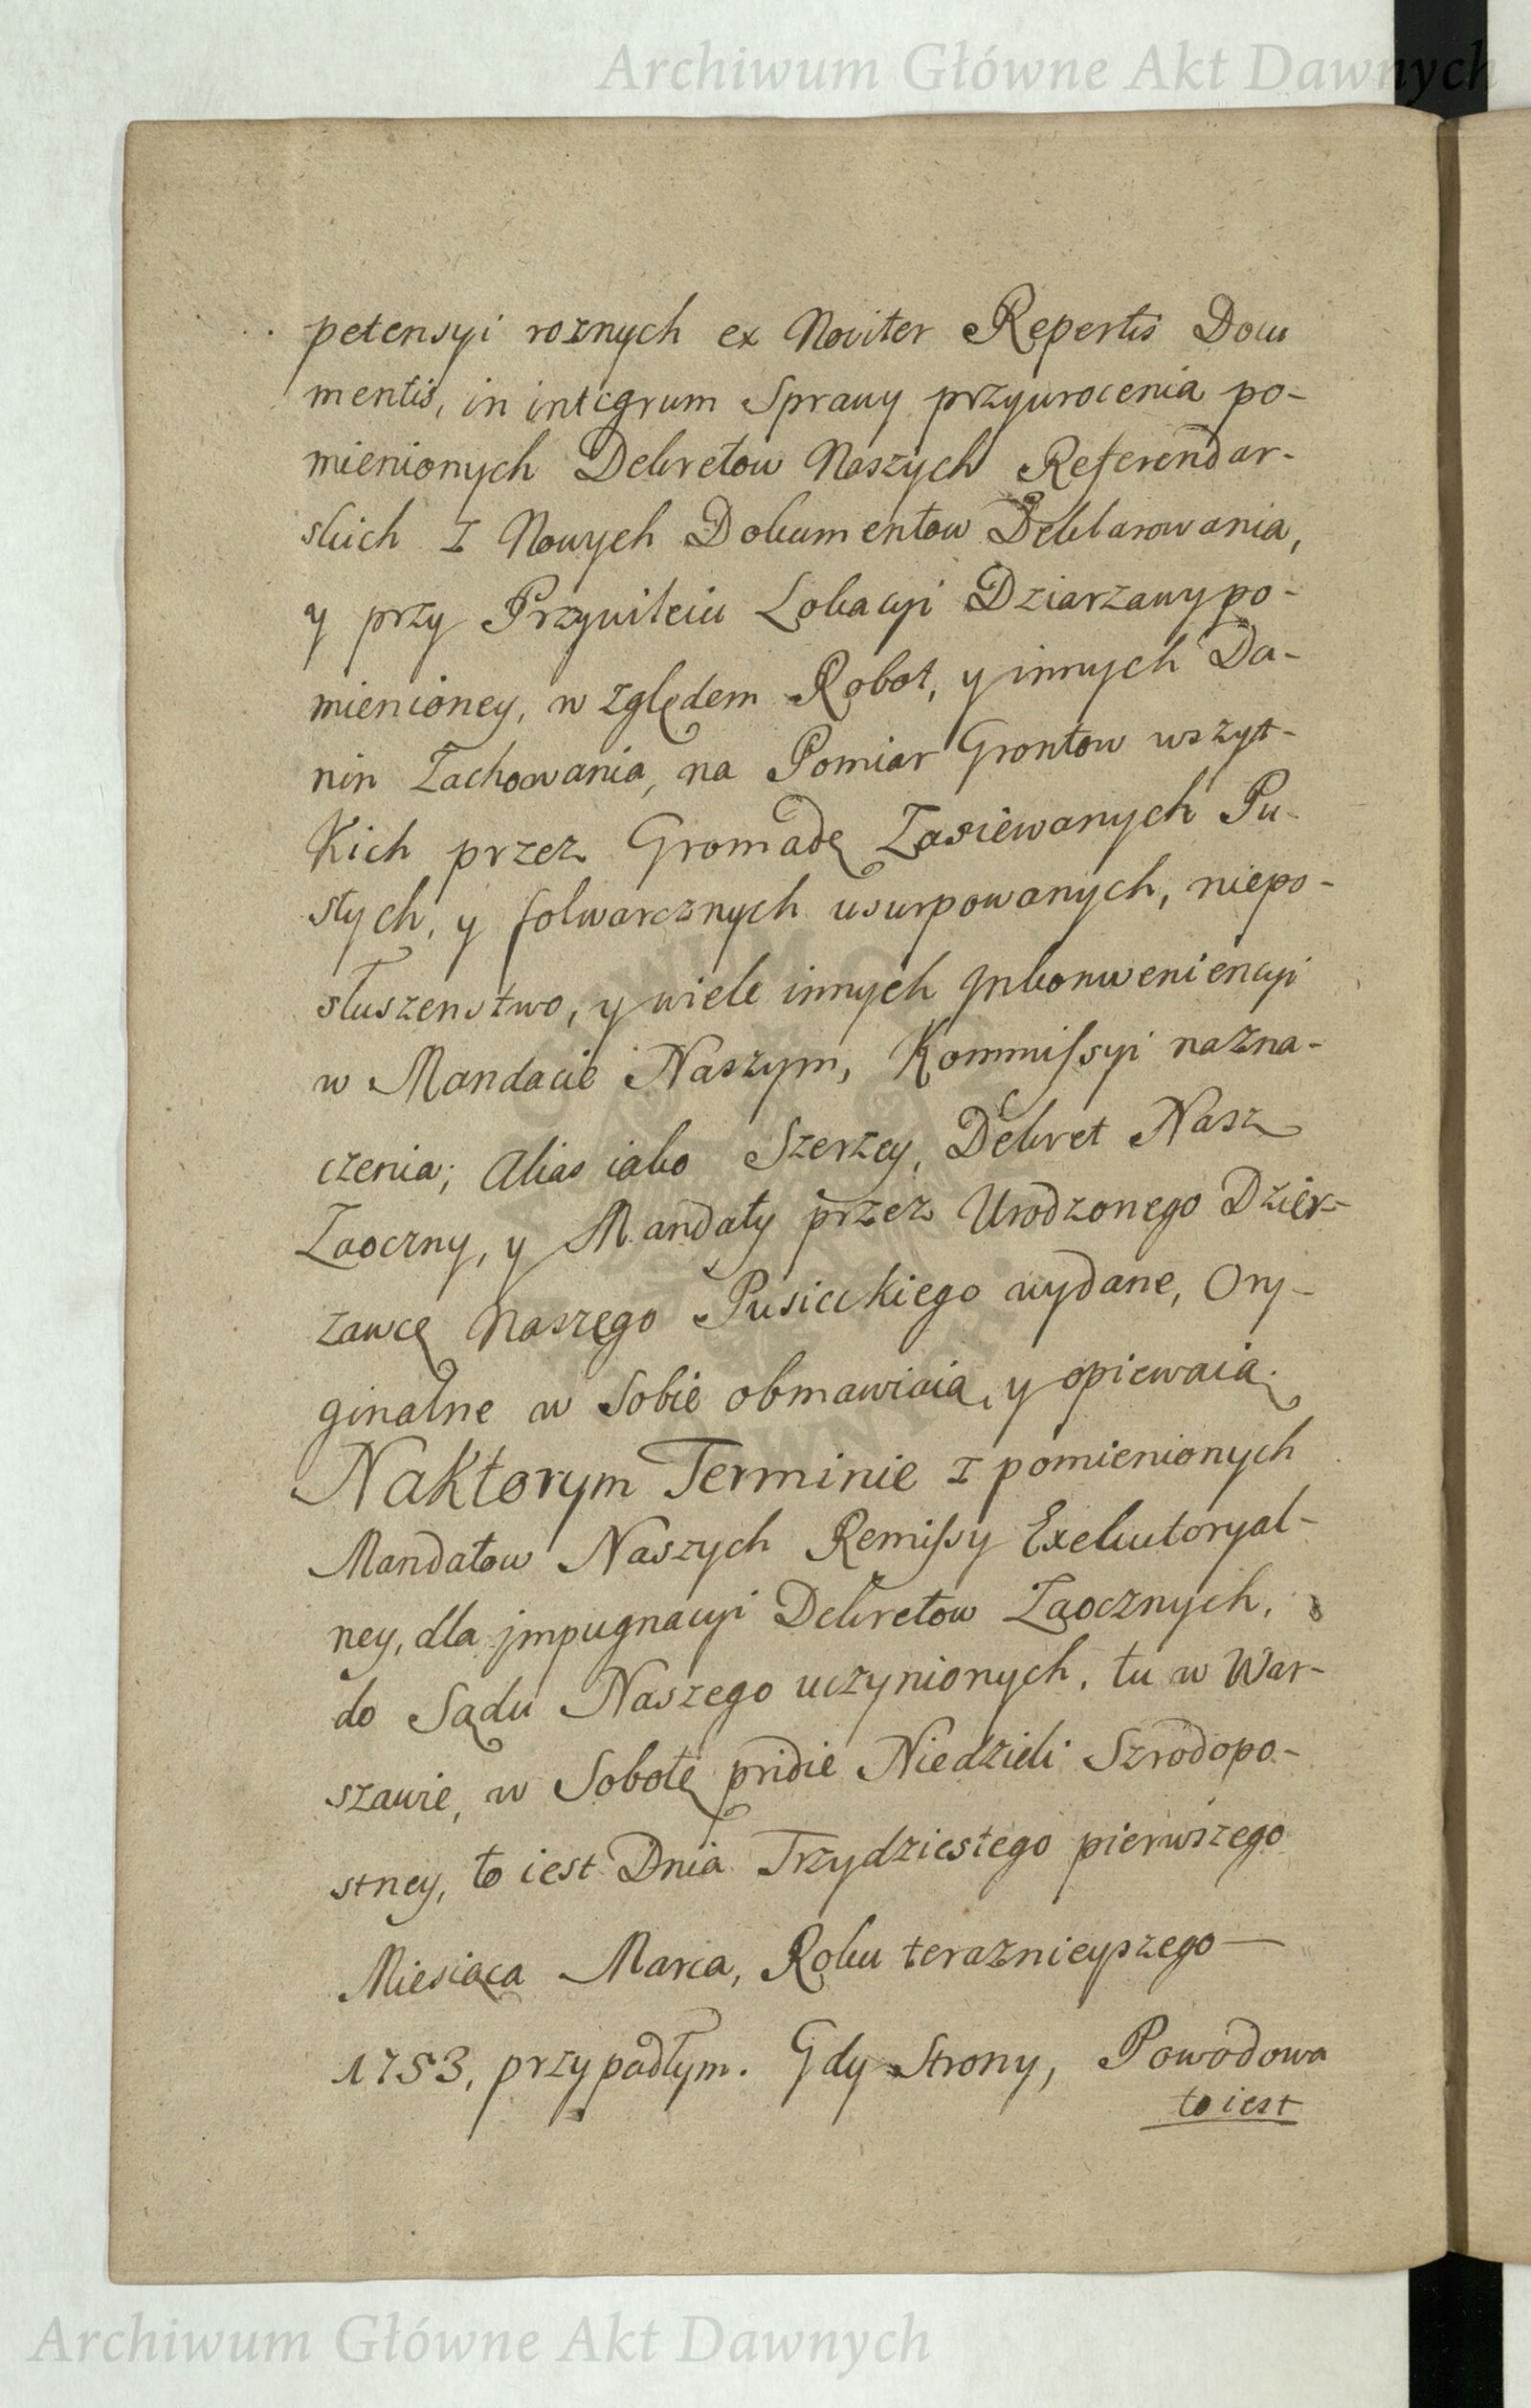 Archiwum Główne Akt Dawnych
petensyi roznych ex Noviter Repertis Docu
mentis, in integrum Sprawy przywrocenia po-
mienionych Dekretow Naszych Referendar-
skich z Nowych Dokumentow Deklarowania,
y przy Przywileiu Lokacyi Dziarzawy po-
mienioney, w zględem Robot, y innych Da-
nin Zachowania, na Pomiar Grontow wszyt-
Kich przez Gromadę Zasiewanych Pu-
stych, y folwarcznych usurpowanych, niepo-
słuszenstwo, y wiele innych Jnkonweniencyi
w Mandacie Naszym, Kommissyi nazna-
czenia; Alias iako Szerzey, Dekret Nasz
Zaoczny, y Mandaty przez Urodzonego Dzier-
zawcę Naszego Pusieckiego wydane, Ory-
ginalne w Sobie obmawiaią, y opiewaią.
Naktorym Terminie z pomienionych
Mandatow Naszych Remissy Exekutoryal-
ney, dla jmpugnacyi Dekretow Zaocznych,
do Sądu Naszego uczynionych, tu w War-
szawie, w Sobotę pridie Niedzieli Szrodopo-
stney, to iest Dnia Trzydziestego pierwszego
Miesiąca Marca, Roku teraznieyszego
1753, przypadłym. Gdy Strony, Powodowa
to iest
Archiwum Główne Akt Dawnych